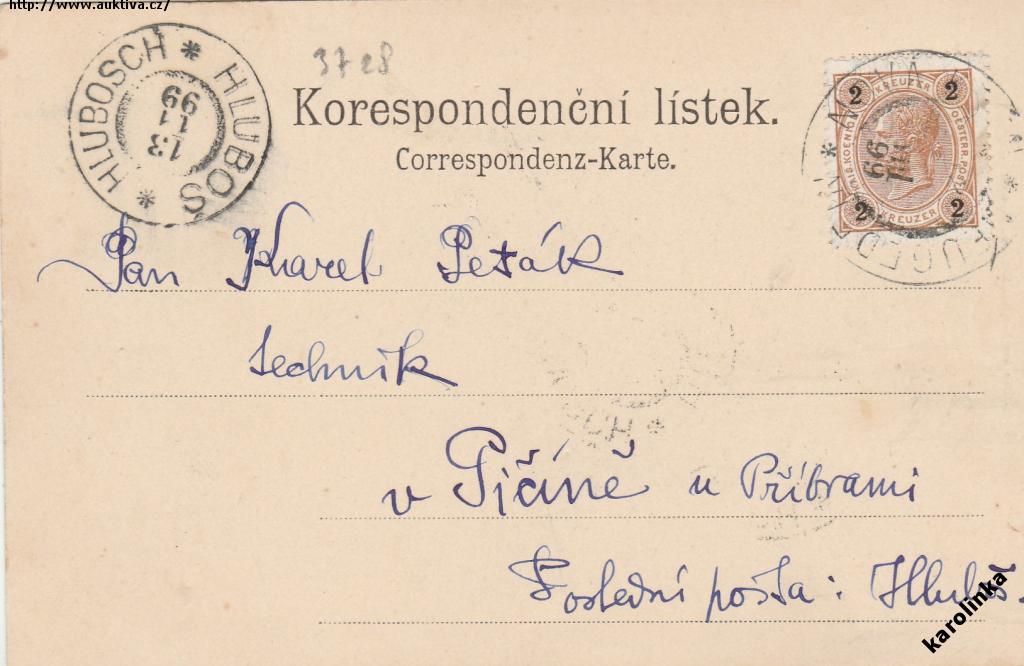 http://www.auktiva.cz/
HLUBOSCH * HLUBOS *
13
11
99
3728
Korespondenční lístek.
Correspondenz-Karte.
2 KREUZER 2
2 KREUZER 2
99
Pan Karel Peták
technik
v Pičíně u Příbrami
Poslední pošta: Hluboš.
karolinka